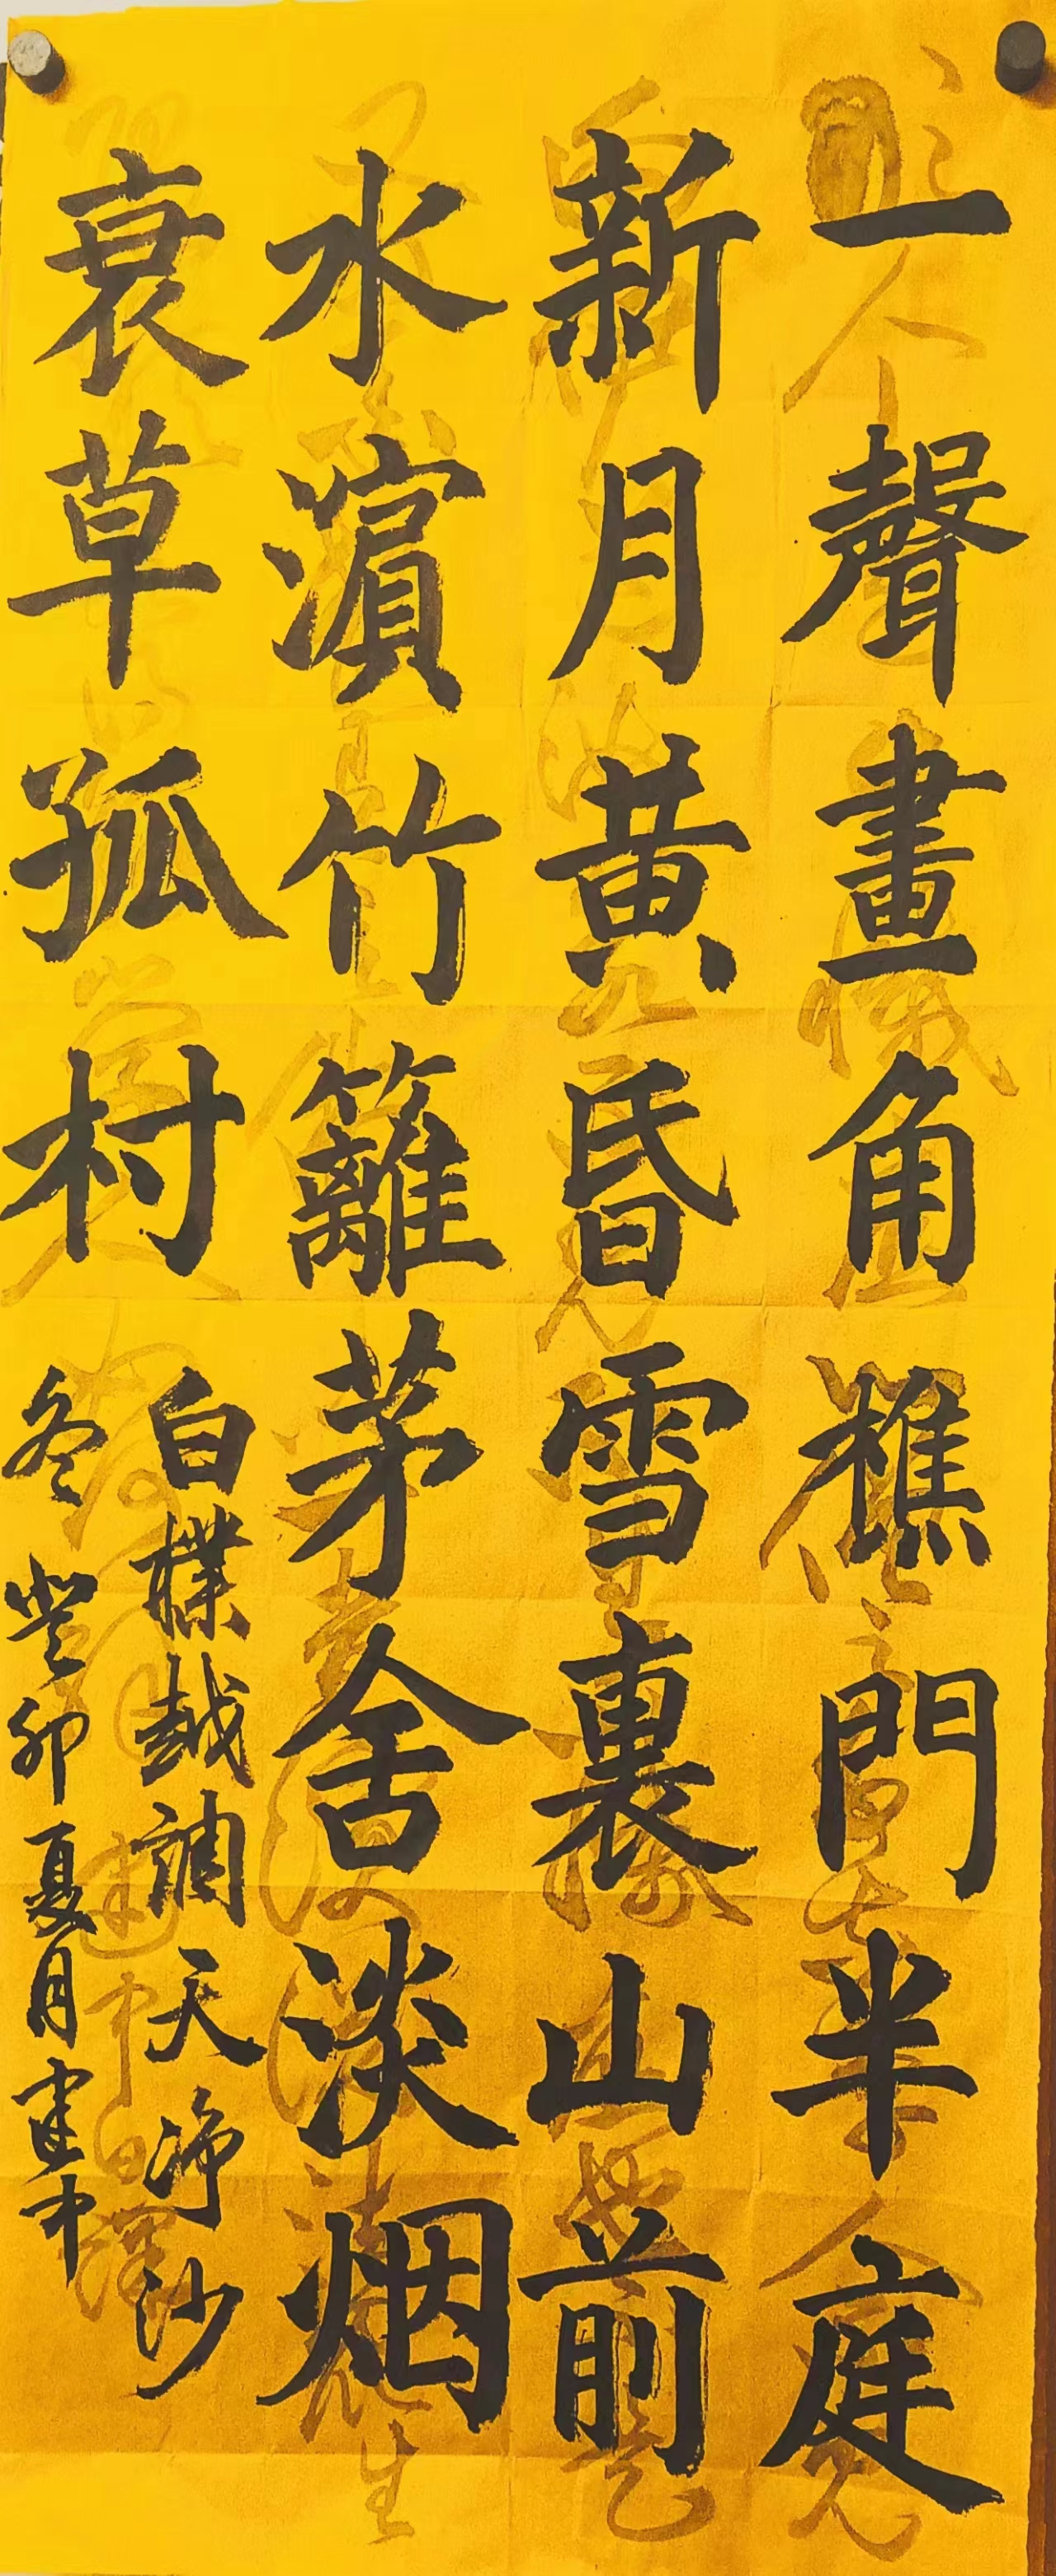 一聲畫角樵門半庭
新月黄昏雪裏山前
水濵竹籬茅舍淡烟
衰草孤村
白樸越調天淨沙
冬 癸卯夏月建中